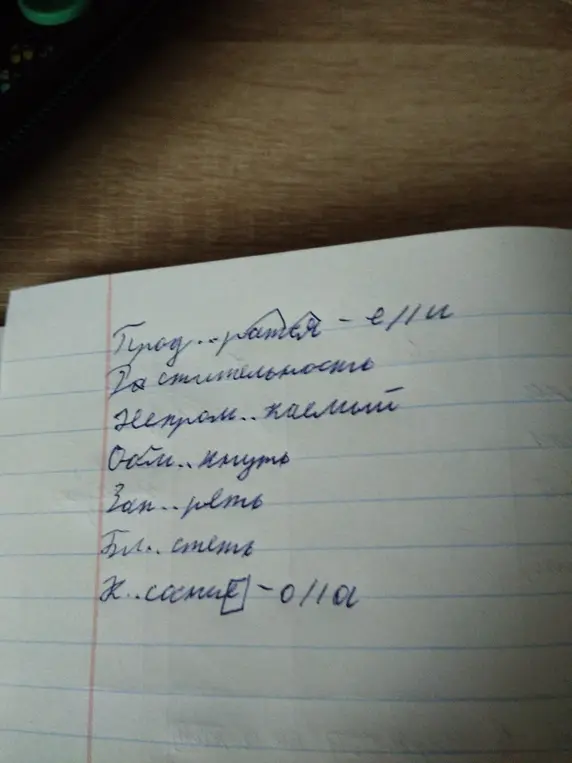 Прод..раться - е//и
Растительность
Непром..каемый
Обм..кнуть
Зап..рять
Бл..стеть
К..сание - о//а